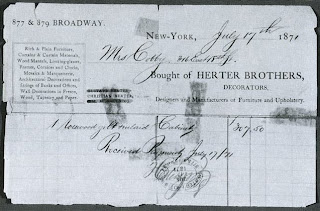 877 & 879 BROADWAY.
NEW-YORK, July 17th 1871
Mrs Colby
Bought of HERTER BROTHERS,
DECORATORS,
Designers and Manufacturers of Furniture and Upholstery.
Rich & Plain Furniture,
Curtains & Curtain Materials,
Wood Mantels, Looking-glasses,
Bronzes, Cornices and Clocks,
Mosaics & Marqueterie,
Architectural Decorations and
Fittings of Banks and Offices,
Wall Decorations in Fresco,
Wood, Tapestry and Paper.
CHRISTIAN HERTER
1 Rosewood & Inlaid Cabinet 367.50
Received Payment July 17/71